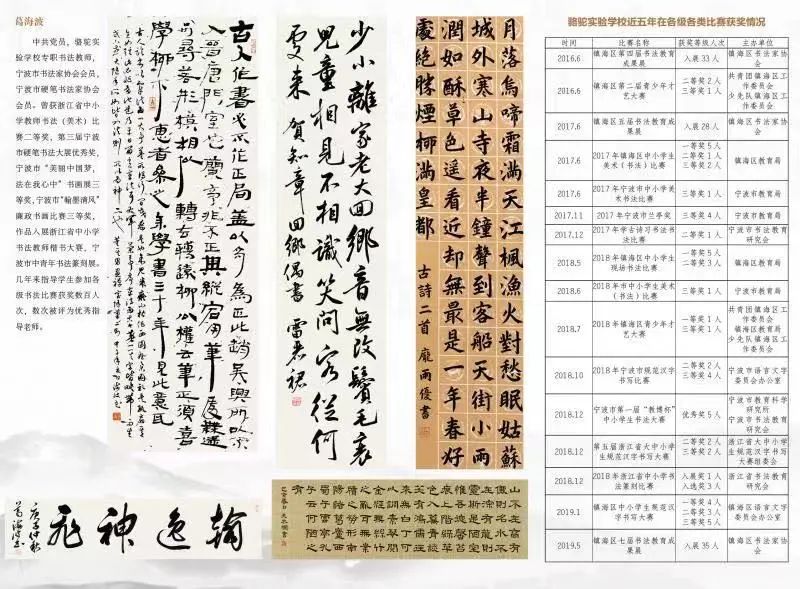 葛海波
中共党员，骆驼实
验学校专职书法教师，
宁波市书法家协会会员，
宁波市硬笔书法家协会
会员。曾获浙江省中小
学教师书法（美术）比
赛二等奖，第三届宁波
市硬笔书法大展优秀奖，
宁波市“美丽中国梦，
法在我心中”书画展三
等奖，宁波市“翰墨清风”
廉政书画比赛三等奖，
作品入展浙江省中小学
书法教师楷书大赛，宁
波市中青年书法篆刻展。
几年来指导学生参加各
级书法比赛获奖数百人
次，数次被评为优秀指
导老师。
古人作書必作正局蓋以奇為正此趙吳興所以不
入晉唐門室也蘭亭非不正其縱宕用筆處無迹
可尋若形模相似轉去轉遠柳公權云筆正須喜
學柳下惠者參之余學書三十年見此意耳
少小離家老大回鄉音無改鬢毛衰
兒童相見不相識笑問客從何
處來 賀知章回鄉偶書
月落烏啼霜滿天江楓漁火對愁眠姑蘇
城外寒山寺夜半鐘聲到客船天街小雨
潤如酥草色遙看近却無最是一年春好
處絕勝煙柳滿皇都
古詩二首 龐雨優書
翰逸神飛
庚子仲秋
葛海波書
山不在高有
仙則名水不
在深有龍則
靈斯是陋室
惟吾德馨苔
痕上階綠草
色入簾青談
笑有鴻儒往
來無白丁可
以調素琴閱
金經無絲竹
之亂耳無案
牘之勞形南
陽諸葛廬西
蜀子雲亭孔
子云何陋之
有
骆驼实验学校近五年在各级各类比赛获奖情况
时间 比赛名称 获奖等级人次 主办单位
2016.6 镇海区第四届书法教育成果展 入展 33 人 镇海区书法家协会
2016.6 镇海区第二届青少年才艺大赛 二等奖 2 人 三等奖 1 人 共青团镇海区工作委员会 少先队镇海区工作委员会
2017.6 镇海区五届书法教育成果展 入展 28 人 镇海区书法家协会
2017.6 2017 年镇海区中小学生美术（书法）比赛 一等奖 5 人 二等奖 1 人 三等奖 2 人 镇海区教育局
2017.6 2017 年宁波市中小学美术书法比赛 三等奖 1 人 宁波市教育局
2017.11 2017 年宁波市兰亭奖 三等奖 4 人 宁波市教育局
2017.12 2017 年学古诗习书法书法比赛 二等奖 1 人 宁波市书法教育研究会
2018.5 2018 年镇海区中小学生现场书法比赛 一等奖 5 人 二等奖 3 人 镇海区教育局
2018.6 2018 年市中小学生美术（书法）比赛 三等奖 1 人 宁波市教育局
2018.7 2018 年镇海区青少年才艺大赛 一等奖 1 人 三等奖 1 人 共青团镇海区工作委员会 镇海区教育局 少先队镇海区工作委员会
2018.10 2018 年宁波市规范汉字书写比赛 一等奖 2 人 三等奖 4 人 宁波市语言文字委员会办公室
2018.12 宁波市第一届“教博杯”中小学生书法大赛 优秀奖 5 人 宁波市教育科学研究所 宁波市书法教育研究会
2018.12 第五届浙江省大中小学生规范汉字书写大赛 二等奖 2 人 三等奖 2 人 浙江省大中小学生规范汉字书写大赛组委会
2018.12 2018 年浙江省中小学书法篆刻比赛 入展奖 1 人 入选奖 3 人 浙江省书法教育研究会
2019.1 镇海区中小学生规范汉字书写大赛 一等奖 4 人 二等奖 3 人 三等奖 5 人 镇海区语言文字委员会办公室
2019.5 镇海区七届书法教育成果展 入展 35 人 镇海区书法家协会